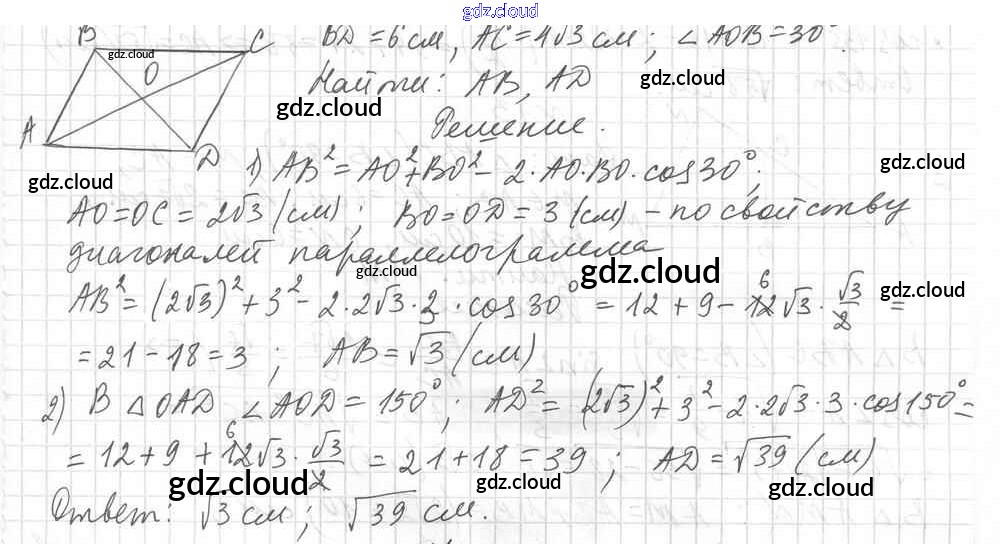 gdz.cloud
B C O A D
BD = 6 см, AC = 4√3 см; ∠AOB = 30°.
gdz.cloud
Найти: AB, AD
gdz.cloud gdz.cloud
Решение.
gdz.cloud
1) AB² = AO² + BO² - 2·AO·BO·cos30°;
gdz.cloud
AO = OC = 2√3 (см); BO = OD = 3 (см) - по свойству
диагоналей параллелограмма
gdz.cloud gdz.cloud
AB² = (2√3)² + 3² - 2·2√3·3·cos30° = 12 + 9 - 12√3 · √3/2 =
6
gdz.cloud gdz.cloud
= 21 - 18 = 3; AB = √3 (см)
gdz.cloud
2) В △OAD ∠AOD = 150°; AD² = (2√3)² + 3² - 2·2√3·3·cos150° =
6
= 12 + 9 + 12√3 · √3/2 = 21 + 18 = 39; AD = √39 (см)
gdz.cloud gdz.cloud gdz.cloud
Ответ: √3 см; √39 см.